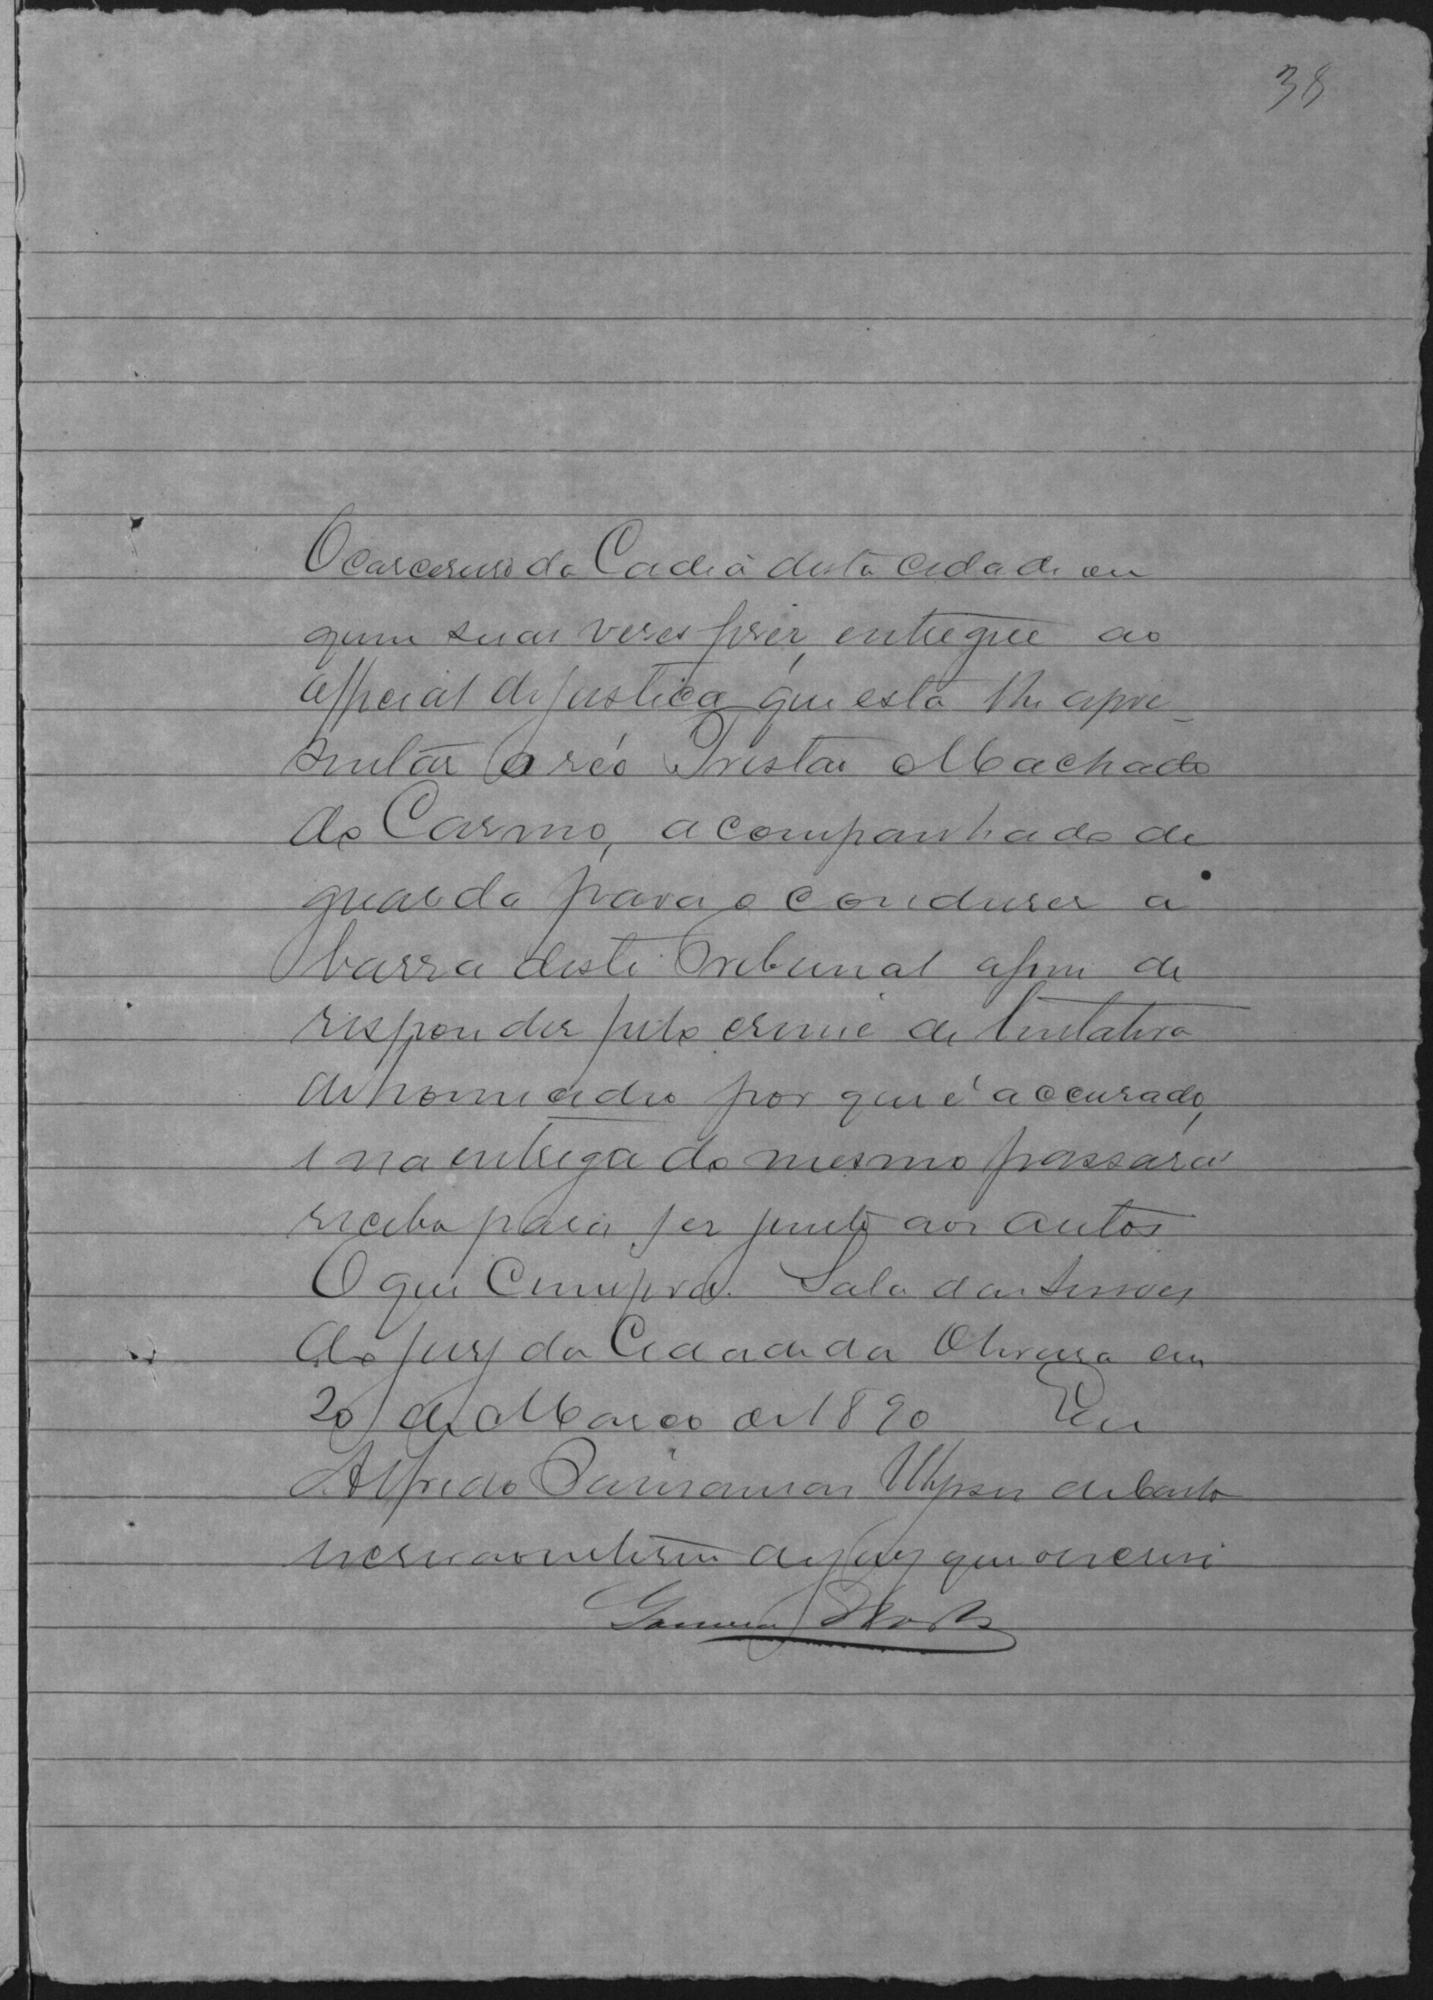 38
O carcereiro da Cadeia desta cidade ou
quem suas veses fizer, entregue ao
official de justiça que esta lhe apre-
sentar o réo Tristão Machado
do Carmo, acompanhado de
guarda para o conduser a
barra deste Tribunal afim de
responder pelo crime de tentativa
de homicidio por que é accusado,
e na entrega do mesmo passará
recibo para ser junto aos autos
O que Cumpra. Sala das Sessoes
do jury da Cidade da Oliveira em
20 de Março de 1890 Eu
Alfredo Ulysses de Castro
escrivão interino do jury que o escrevi